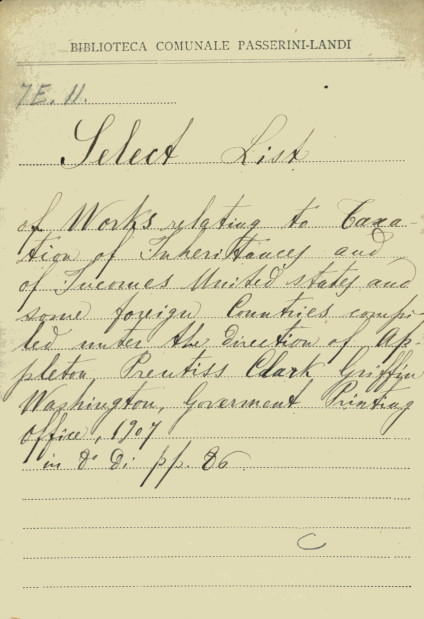 BIBLIOTECA COMUNALE PASSERINI-LANDI
7E. 11.
Select List
of Works relating to Taxa-
tion of Inheritances and
of Incomes United states and
some foreign Countries compi-
led unter the direction of Ap-
pleton Prentiss Clark Griffin
Washington, Goverment Printing
office, 1907
in 8° di pp. 86.
C